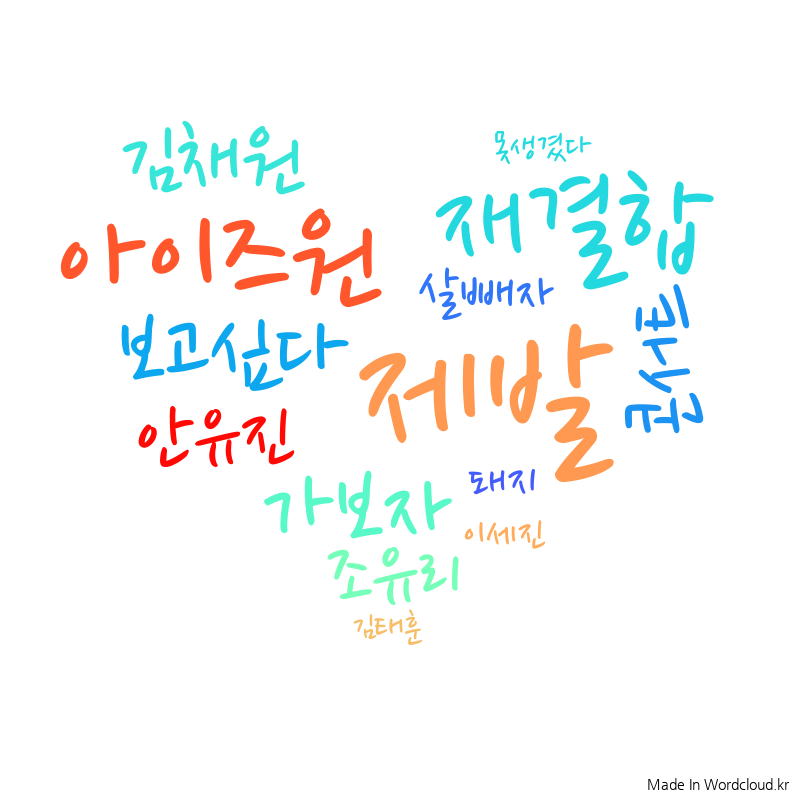 김채원
못생겼다
재결합
아이즈원
살빼자
보고싶다
제발
안유진
돼지
가보자
이세진
조유리
김태훈
Made In Wordcloud.kr